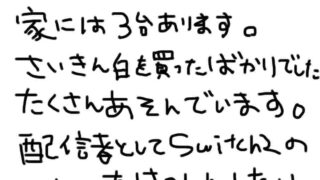 家には3台あります。
さいきん白を買ったばかりでした
たくさんあそんでいます。
配信者としてSwitch2の